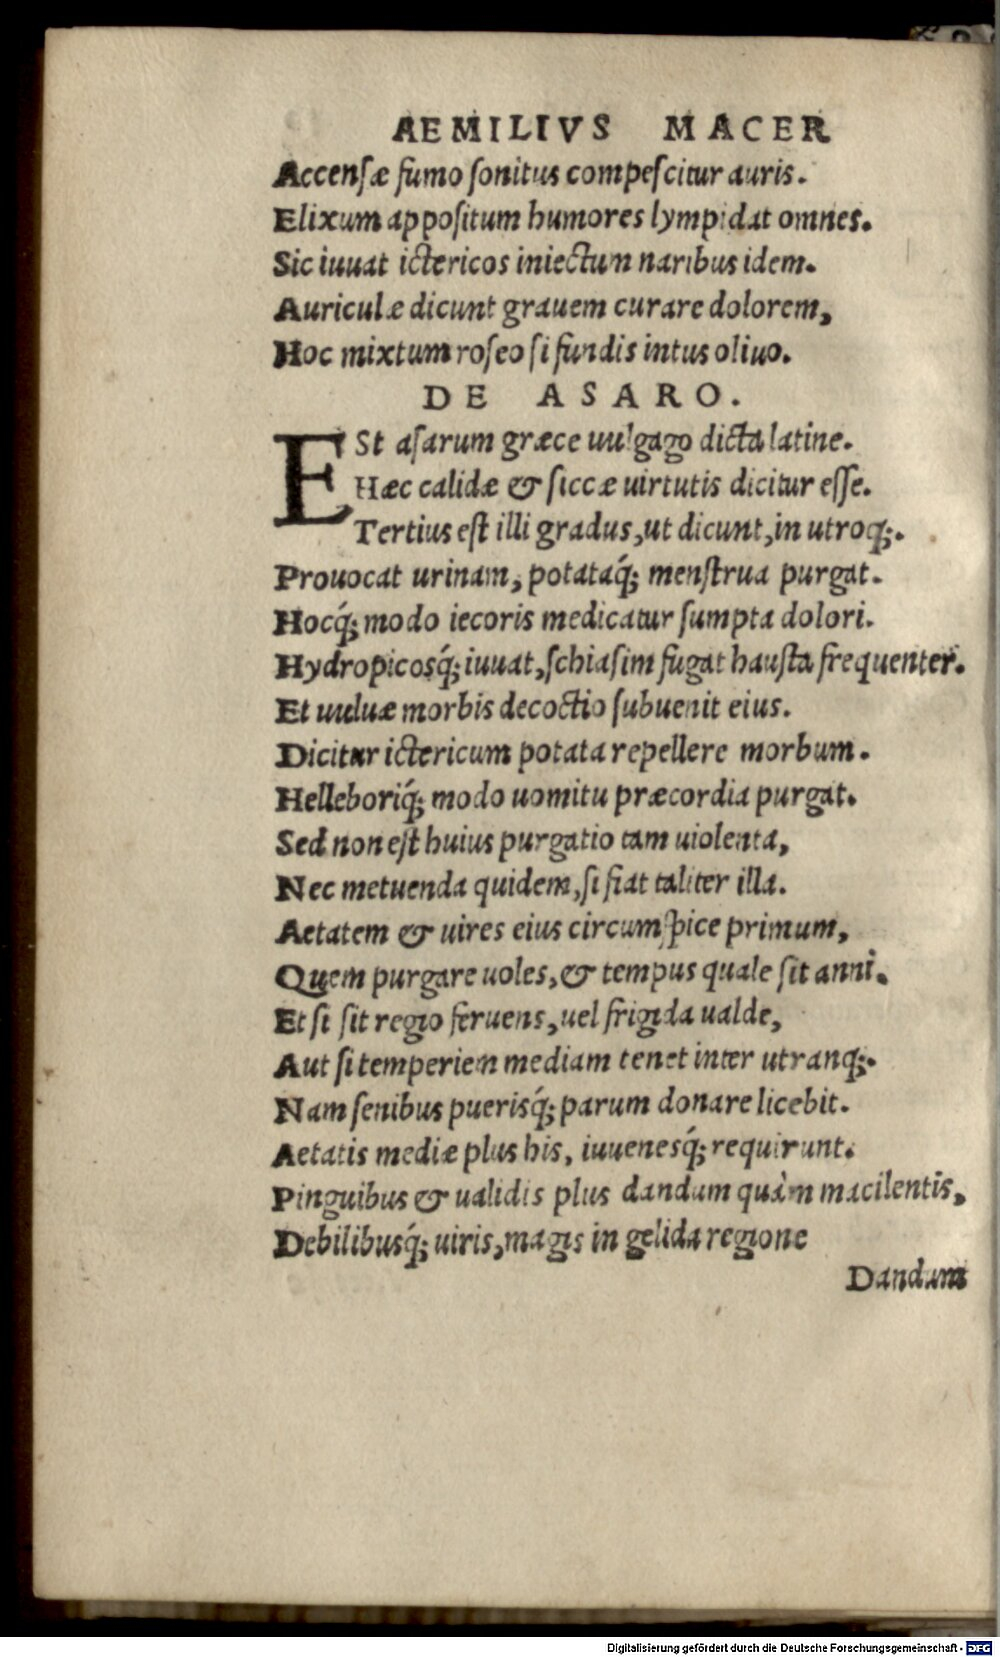 AEMILIVS MACER
Accensæ fumo sonitus compescitur auris.
Elixum appositum humores lympidat omnes.
Sic iuuat ictericos iniectum naribus idem.
Auriculæ dicunt grauem curare dolorem,
Hoc mixtum roseo si fundis intus oliuo.
DE ASARO.
ESt asarum græce uulgago dicta latine.
Hæc calidæ & siccæ uirtutis dicitur esse.
Tertius est illi gradus, ut dicunt, in utroq;.
Prouocat urinam, potataq́; menstrua purgat.
Hocq́; modo iecoris medicatur sumpta dolori.
Hydropicosq́; iuuat, schiasim fugat hausta frequenter.
Et uuluæ morbis decoctio subuenit eius.
Dicitur ictericum potata repellere morbum.
Helleboriq́; modo uomitu præcordia purgat.
Sed non est huius purgatio tam uiolenta,
Nec metuenda quidem, si fiat taliter illa.
Aetatem & uires eius circumspice primum,
Quem purgare uoles, & tempus quale sit anni.
Et si sit regio feruens, uel frigida ualde,
Aut si temperiem mediam tenet inter utranq;.
Nam senibus puerisq́; parum donare licebit.
Aetatis mediæ plus his, iuuenesq́; requirunt.
Pinguibus & ualidis plus dandum quàm macilentis,
Debilibusq́; uiris, magis in gelida regione
Dandum
Digitalisierung gefördert durch die Deutsche Forschungsgemeinschaft - DFG